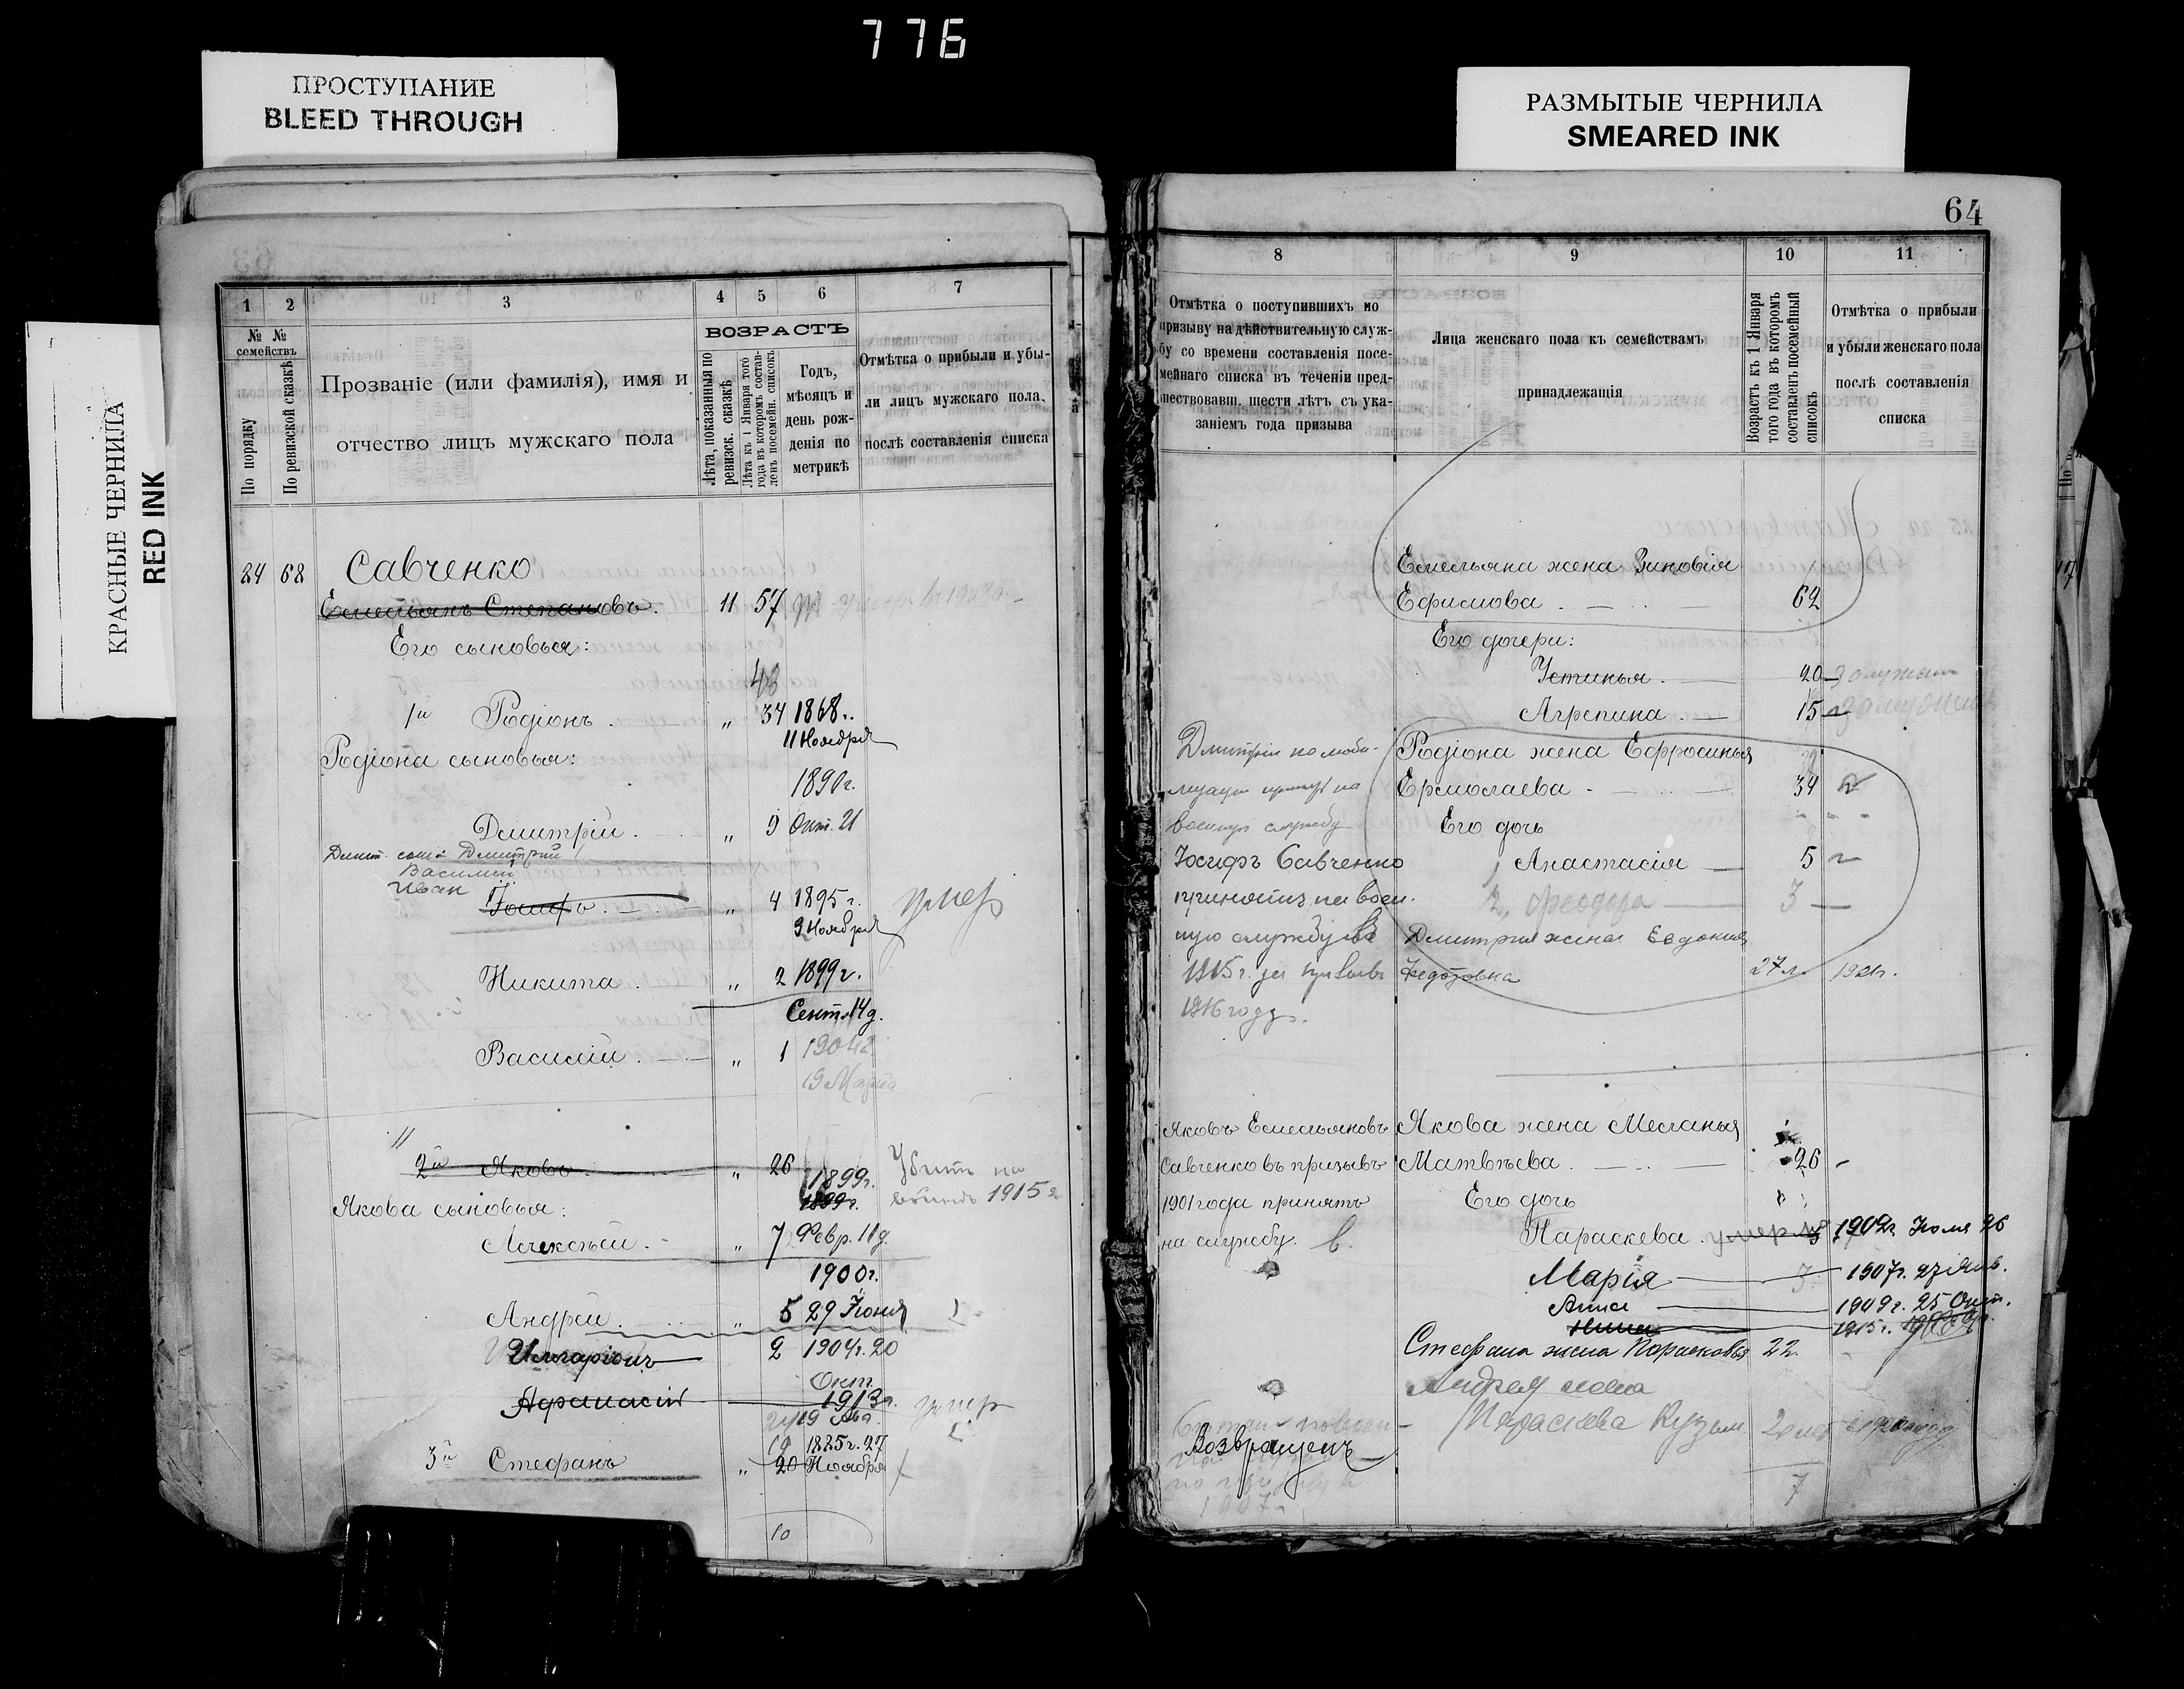 776
ПРОСТУПАНИЕ
BLEED THROUGH
РАЗМЫТЫЕ ЧЕРНИЛА
SMEARED INK
КРАСНЫЕ ЧЕРНИЛА
RED INK
1 2 3 4 5 6 7
№ № семействъ
По порядку
По ревизской сказкѣ
Прозваніе (или фамилія), имя и
отчество лицъ мужскаго пола
ВОЗРАСТЪ
Лѣта, показанныя по
ревизск. сказкѣ
Лѣта къ 1 Января того
года въ которомъ состав-
ленъ посемейн. списокъ
Годъ,
мѣсяцъ и
день рож-
денія по
метрикѣ
Отмѣтка о прибыли и убы-
ли лицъ мужскаго пола,
послѣ составленія списка
24 68 Савченко
Емельянъ Степановъ. 11 57
Его сыновья:
43
1й Родіонъ. " 34 1868г.
11 Ноября
Родіона сыновья:
1890г.
Дмитрій. " 9 Окт. 21
Дмит. сын: Дмитрій
Василий
Иван
Іосифъ. " 4 1895 г. умер
9 Ноября
Никита. " 2 1899г.
Сент. 14 д.
Василій. " 1
19 Марта
2й Яковъ " 26 1899г. Убит на
1899г. 1915 г
Якова сыновья:
Алексѣй. " 7 Февр. 11 д.
1900г.
Андрей. " 5 29 Іюня
Илларіонъ 2 1904г. 20
Окт.
Афанасій 1913г. умер
19 Авг.
19 1885г. 27
3й Стефанъ " 20 Ноября
10
64
8 9 10 11
Отмѣтка о поступившихъ по
призыву на дѣйствительную служ-
бу со времени составленія посе-
мейнаго списка въ теченіи пред-
шествовавш. шести лѣтъ съ ука-
заніемъ года призыва
Лица женскаго пола къ семействамъ
принадлежащія
Возрастъ къ 1 Января
того года въ которомъ
составленъ посемейный
списокъ
Отмѣтка о прибыли
и убыли женскаго пола
послѣ составленія
списка
Емельяна жена Зиновія
Ефимова. 62
Его дочери:
Устинья. 20 замужем
Агрепина. 15 замужем
Дмитрій по моби- Родіона жена Ефросинья
на Ермолаева 34
военную службу Его дочь
Іосифъ Савченко 1, Анастасія 5
принятъ на воен- 2, Феодора 3
ную службу въ Дмитрия жена Евдокия
1915г. за призывъ Федотовна 27 л. 1921г.
1916 году.
Яковъ Емельяновъ Якова жена Меланья
Савченко въ призывъ Матвѣева. 26
1901 года принятъ Его дочь
на службу. Параскева. умерла 1902г. Іюля 26
Марія 3 1907г. 27 Янв.
Анна 1909г. 25 Окт.
1915г.
Стефана жена Парасковья 22.
Андрея жена
Параскева Кузьм.
Возвращенъ
7